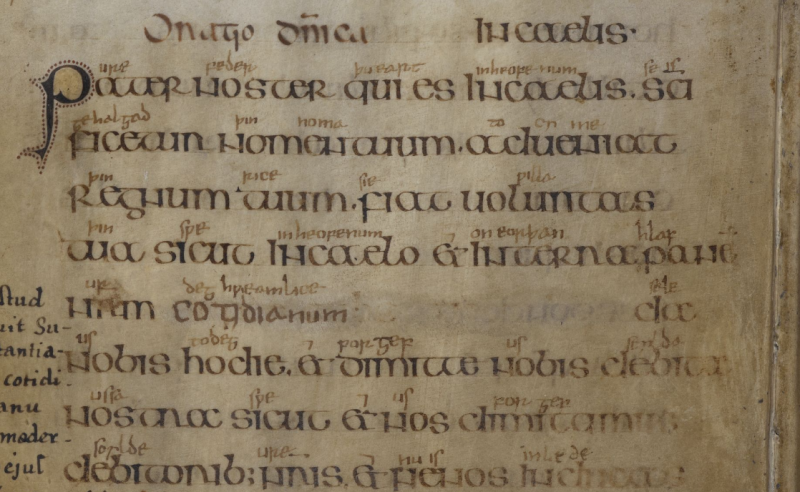 Oratio dn̄ica In caelis·
ure feder þu eart in heofenum se is
Pater noster qui es In caelis. Sci
gehalgod þin noma to cyme
ficetur nomen tuum. adueniat
þin rice sie willa
Regnum tuum. fiat uoluntas
þin swe in heofenum on eorþan hlaf
tua sicut In caelo et In terra panē
deghwæmlice sele
nr̄m cotidianum da
us todeg ⁊ forgef us
nobis hodie. et dimitte nobis debita
ussa swe ⁊ us forgef
nostra sicut et nos dimittimus
ure
debitorib; nr̄is. et ne nos Inducas
stud
uit Su-
tantia-
cotidi.
anu
moder-
ejus